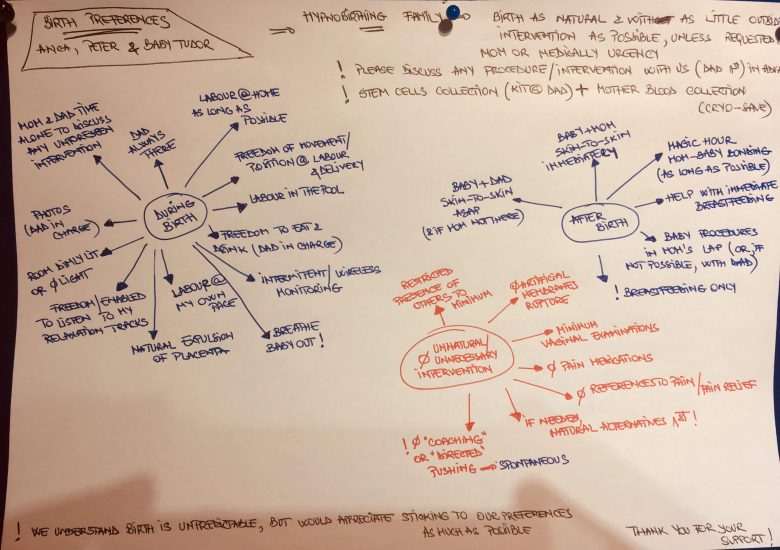 BIRTH PREFERENCES
ANCA, PETER & BABY TUDOR
HYPNOBIRTHING FAMILY
BIRTH AS NATURAL & AS LITTLE OUTSIDE
INTERVENTION AS POSSIBLE, UNLESS REQUESTED
MOM OR MEDICALLY URGENCY
! PLEASE DISCUSS ANY PROCEDURE/INTERVENTION WITH US (DAD 1ST) IN
! STEM CELLS COLLECTION (KIT@DAD) + MOTHER BLOOD COLLECTION
(CRYO-SAVE)
DURING
BIRTH
MOM & DAD TIME
ALONE TO DISCUSS
ANY UNFORESEEN
INTERVENTION
DAD
ALWAYS
THERE
LABOUR @ HOME
AS LONG AS
POSSIBLE
FREEDOM OF MOVEMENT/
POSITION @ LABOUR
& DELIVERY
LABOUR IN THE POOL
FREEDOM TO EAT &
DRINK (DAD IN CHARGE)
INTERMITENT/WIRELESS
MONITORING
BREATHE
BABY OUT!
LABOUR @
MY OWN
PACE
NATURAL EXPULSION
OF PLACENTA
FREEDOM/ENABLED
TO LISTEN TO MY
RELAXATION TRACKS
ROOM DIMLY LIT
OR Ø LIGHT
PHOTOS
(DAD IN CHARGE)
AFTER
BIRTH
BABY+DAD
SKIN-TO-SKIN
ASAP
(& IF MOM NOT THERE)
BABY+MOM
SKIN-TO-SKIN
IMMEDIATELY
MAGIC HOUR
MOM-BABY BONDING
(AS LONG AS POSSIBLE)
HELP WITH IMMEDIATE
BREASTFEEDING
BABY PROCEDURES
IN MOM'S LAP (OR, IF
NOT POSSIBLE, WITH DAD)
! BREASTFEEDING ONLY
Ø UNNATURAL/
UNNECESSARY
INTERVENTION
RESTRICTED
PRESENCE OF
OTHERS TO
MINIMUM
Ø ARTIFICIAL
MEMBRANES
RUPTURE
MINIMUM
VAGINAL EXAMINATIONS
Ø PAIN MEDICATIONS
Ø REFERENCES TO PAIN/PAIN RELIEF
IF NEEDED,
NATURAL ALTERNATIVES 1ST!
! Ø "COACHING"
OR "DIRECTED"
PUSHING → SPONTANEOUS
! WE UNDERSTAND BIRTH IS UNPREDICTABLE, BUT WOULD APPRECIATE STICKING TO OUR PREFERENCES
AS MUCH AS POSSIBLE
THANK YOU FOR YOUR
SUPPORT!